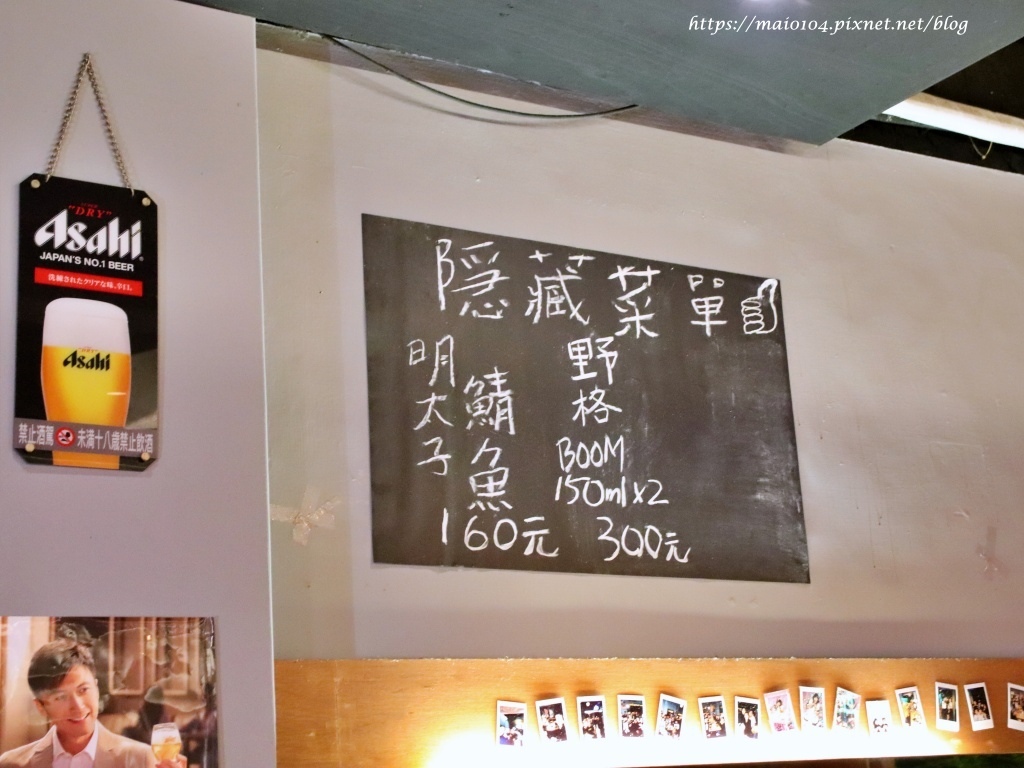 https://maio104.pixnet.net/blog
"DRY"
Asahi
JAPAN'S NO.1 BEER
洗練されたクリアな味、辛口。
Asahi
禁止酒駕 未滿十八歲禁止飲酒
隱藏菜單
明太子
鯖魚
160元
野格
BOOM
150ml x2
300元